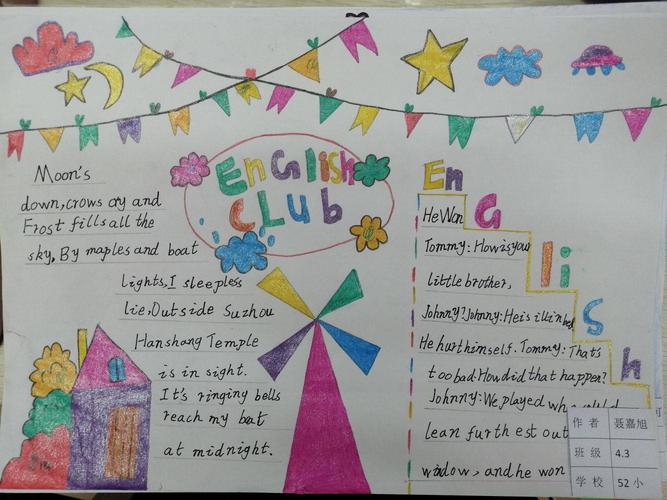 EnGlish
CLub
Moon's
down,crows cry and
Frost fills all the
sky, By maples and boat
lights,I sleepless
lie,Outside Suzhou
Hanshang Temple
is in sight.
It's ringing bells
reach my bat
at midnight.
En
G
li
s
h
He Won
Tommy: How is your
little brother,
Johnny? Johnny: He is ill in bed
He hurt himself. Tommy: That's
too bad. How did that happen?
Johnny: We played who could
lean furthest out
window, and he won
作者 聂嘉旭
班级 4.3
学校 52小